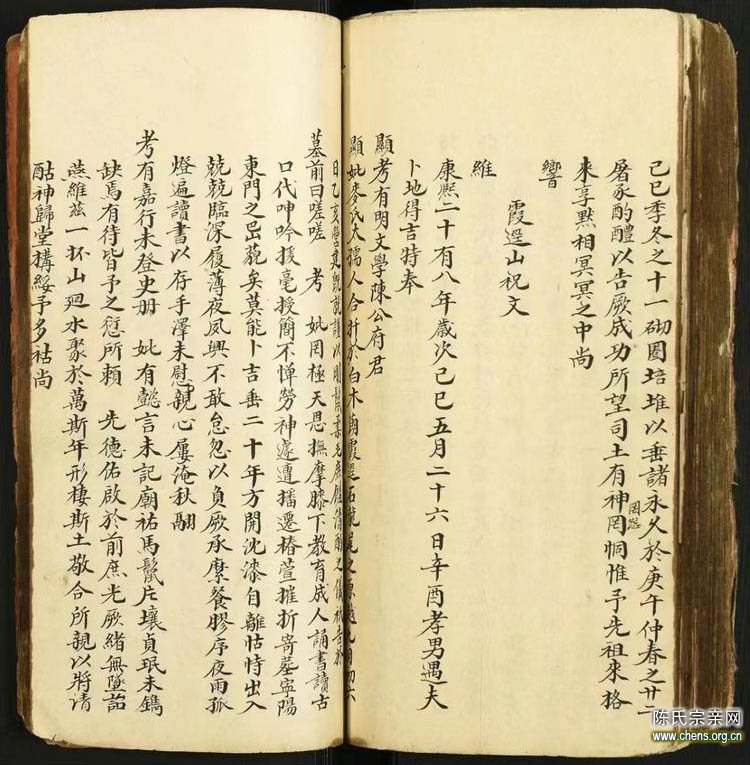 己巳季冬之十一砌圍培堆以垂諸永久於庚午仲春之廿二
屠豕酌醴以告厥成功所望司土有神罔恫惟予先祖來格
罔怨
來享默相冥冥之中尚
響
霞邊山祝文
維
康熈二十有八年歲次己巳五月二十六日辛酉孝男遇夫
卜地得吉特奉
顯考有明文學陳公府君
顯妣麥氏大孺人合針於白木蓢霞邊石龍尾之原
墓前曰嗟嗟 考 妣罔極天恩撫摩膝下教育成人誦書讀古
口代呻吟援毫授簡不憚勞神遽遭播遷椿萱摧折寄墓寧陽
東門之嵒藐矣莫能卜吉垂二十年方開沈漆自離怙恃出入
兢兢臨深履薄夜夙興不敢怠忽以負厥承縻餐膠序夜雨孤
燈遍讀書以存手澤未慰親心屢淹秋翮
考有嘉行未登史册 妣有懿言未記廟祏馬鬛片壤貞珉未鐫
缺焉有待皆予之愆所賴 先德佑啟於前庶光厥緒無墜詒
燕維兹一抔山廻水聚於萬斯年形棲斯土敬合所親以將清
酤神歸堂構綏予多祜尚
陈氏宗亲网
www.chens.org.cn